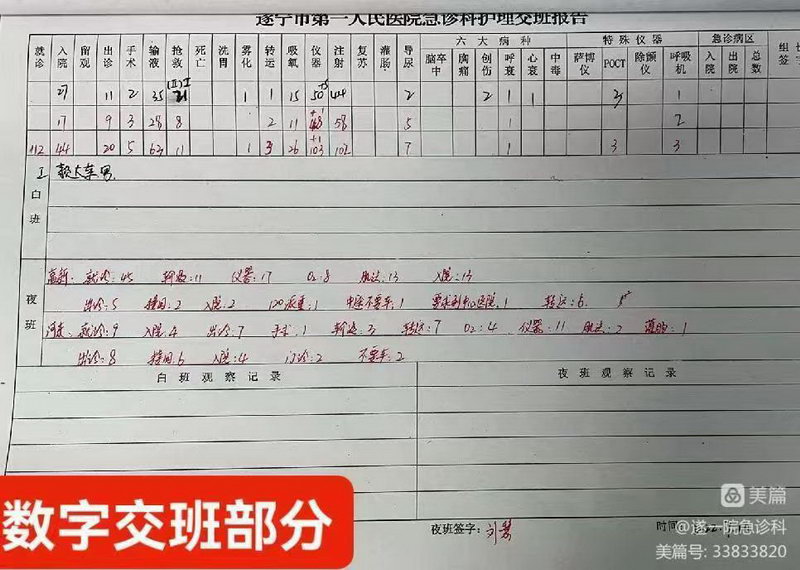 遂宁市第一人民医院急诊科护理交班报告
就诊 入院 留观 出诊 手术 输液 抢救 死亡 洗胃 雾化 转运 吸氧 仪器 注射 复苏 灌肠 导尿 六大病种 特殊仪器 急诊病区
脑卒中 胸痛 创伤 呼衰 心衰 中毒 萨博仪 POCT 除颤仪 呼吸机 入院 出院 总数 签字
27 11 2 35 1 1 15 50 44 2 2 1 1 3 1
17 9 3 28 8 2 11 58 5 1 2
112 44 20 5 63 11 1 3 26 +1 103 102 7 1 3 3
白班
夜班
高新: 就诊:45 输液:11 仪器:17 O2:8 肌注:13 入院:13
出诊:5 接回:2 入院:2 120派重:1 中途不要车:1 转运:6
河东: 就诊:9 入院:4 出诊:7 手术:1 输液:3 转运:7 O2:4 仪器:11 肌注:2
出诊:8 接回:6 入院:4 门诊:2 不要车:2
白班观察记录 夜班观察记录
数字交班部分
夜班签字: 时间:
美篇
@遂一院急诊科
美篇号: 33833820